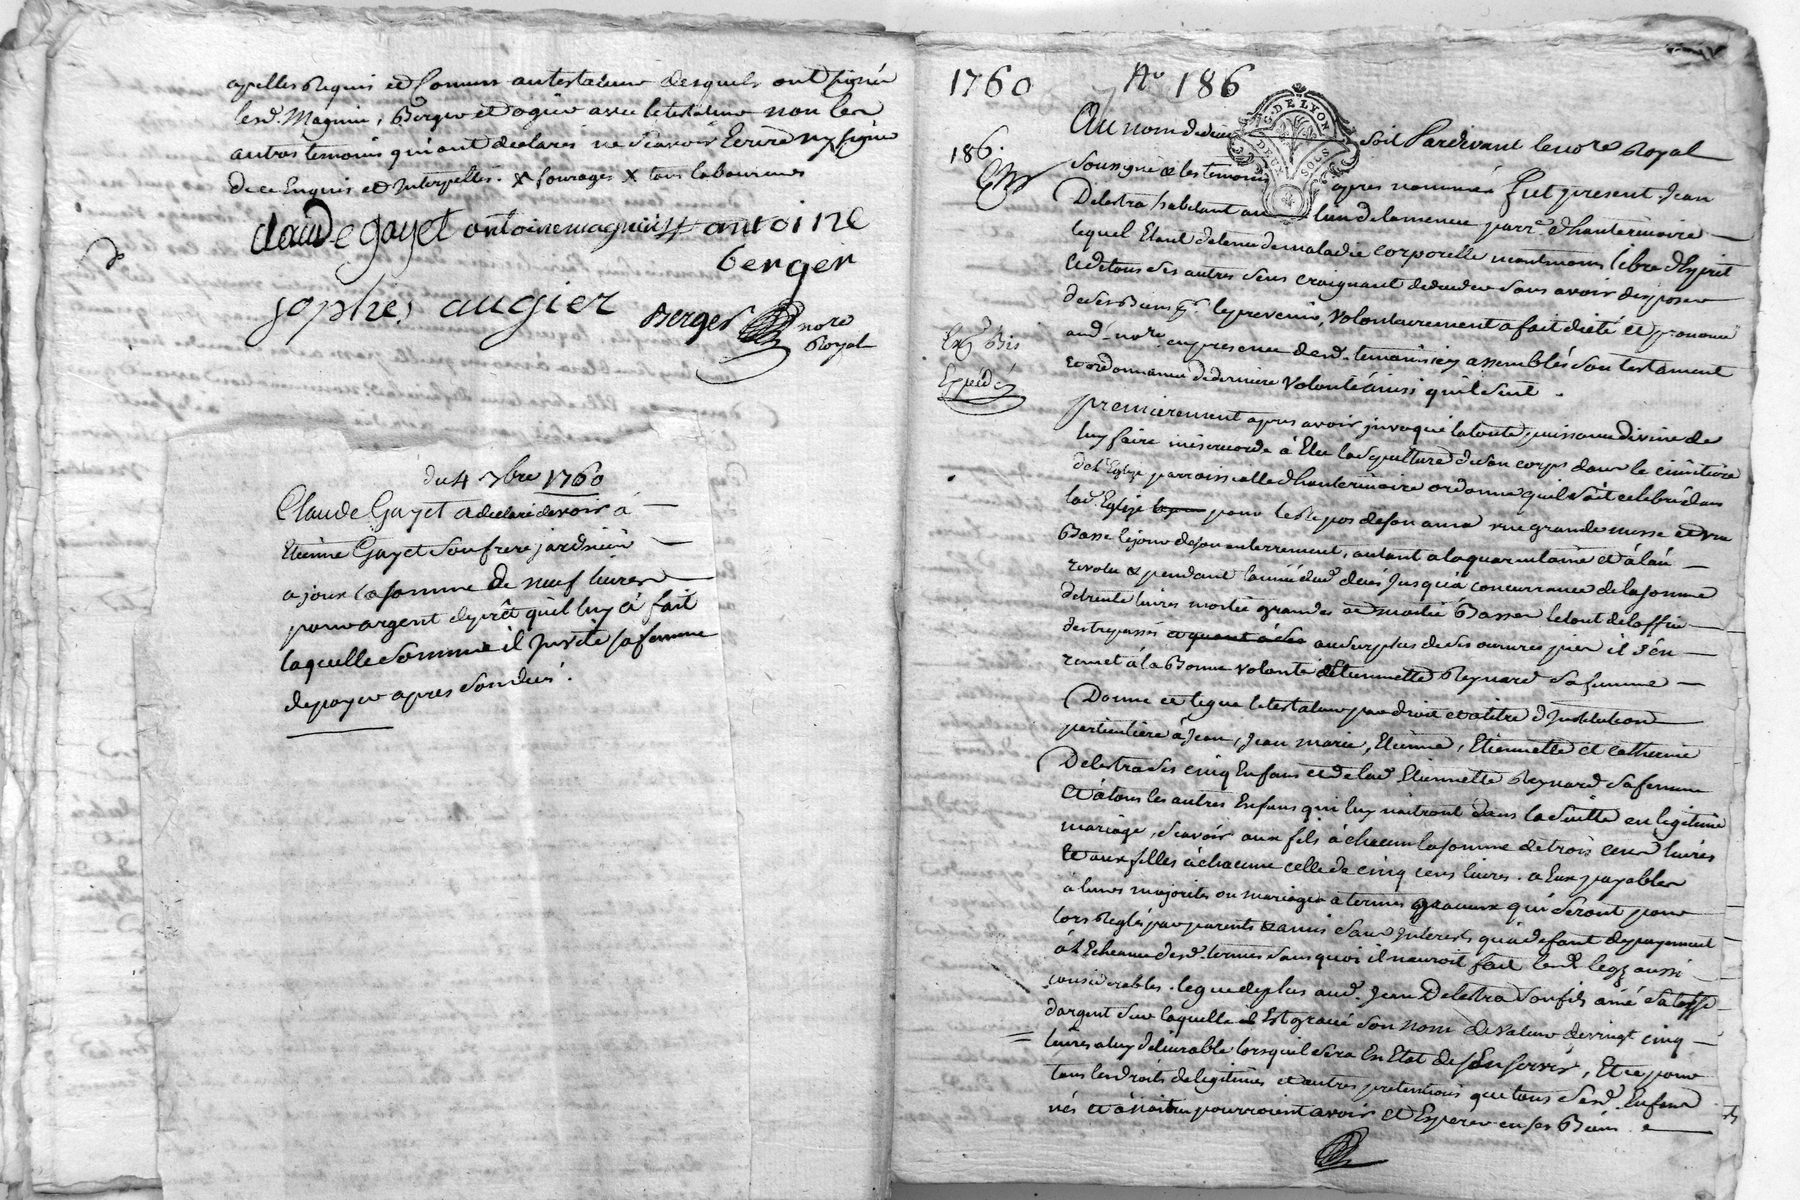 apellés Requis et Connus au testateur desquels ont signé
lesd. Magnin, Berger et ogier avec le testateur non les
autres temoins qui ont declarés ne sçavoir Ecrire ny signer
de ce Enquis et Interpellés. x fourages x tous laboureurs
claude gayet antoine magnin antoine
berger
jophes augier Berger nore
Royal
du 4 7bre 1760
Claude Gayet a declaré devoir à
Etienne Gayet son frere jardinier
a joux la somme de neuf livres
pour argent de prêt qu'il luy à fait
laquelle somme il invite sa femme
de payer apres son decés.
1760 No 186
186.
Exp. Bis
Expedié
G. DE LYON
DEUX SOLS
Au nom de dieu soit Pardevant le nore Royal
soussigné & les temoins apres nommés fut present Jean
Delestra habitant au lieu de la menue parr.e d'hauterivoire
lequel Etant detenu de maladie corporelle neantmoins libre d'Esprit
et de tous ses autres sens craignant de deceder sans avoir disposer
de ses Biens pr. le prevenir, volontairement a fait dicté et prononcé
aud. nore. en presence desd. temoins icy assemblés son testament
et ordonnance de derniere volonté ainsi qu'il suit.
premierement apres avoir invoqué la toute puissance divine de
luy faire misericorde à Elu la sepulture de son corps dans le cimitiere
de l'Eglise parroissialle d'hauterivoire ordonne quil soit celebré dans
lad. Eglise pour le Repos de son ame une grande messe et une
Basse le jour de son enterrement, autant a la quarantaine et à l'an
revolu & pendant l'année dud. decés jusqu'à concurrance de la somme
de trente livres moitié grandes et moitié Basses le tout de l'office
des trepassés et quant à ses au surplus de ses œuvres pies il s'en
remet à la Bonne volonté d'Etiennette Reynard sa femme
Donne et legue le testateur par droit et a titre d'Institution
particuliere à Jean, Jean marie, Etienne, Etiennette et Catherine
Delestra ses cinq Enfans et de lad. Etiennette Reynard sa femme
Et à tous les autres Enfans qui luy naitront dans la suitte en legitime
mariage, sçavoir aux fils à chacun la somme de trois cens livres
Et aux filles à chacune celle de cinq cens livres. a Eux payables
à leurs majorités ou mariages a termes qui seront pour
lors Reglés par parents & amis sans Interests qu'à defaut de payement
à l'Echeance desd. termes sans quoi il n'auroit fait lesd. legs aussi
considerables. legue de plus aud. Jean Delestra son fils ainé sa tasse
d'argent sur laquelle Est gravé son nom de valeur de vingt cinq
livres a luy délivrable lorsqu'il sera En Etat de s'En servir, Et ce pour
tous les droits de legitimes et autres pretentions que tous sesd. Enfans
nés et à naitre pourroient avoir et Esperer en ses Biens.